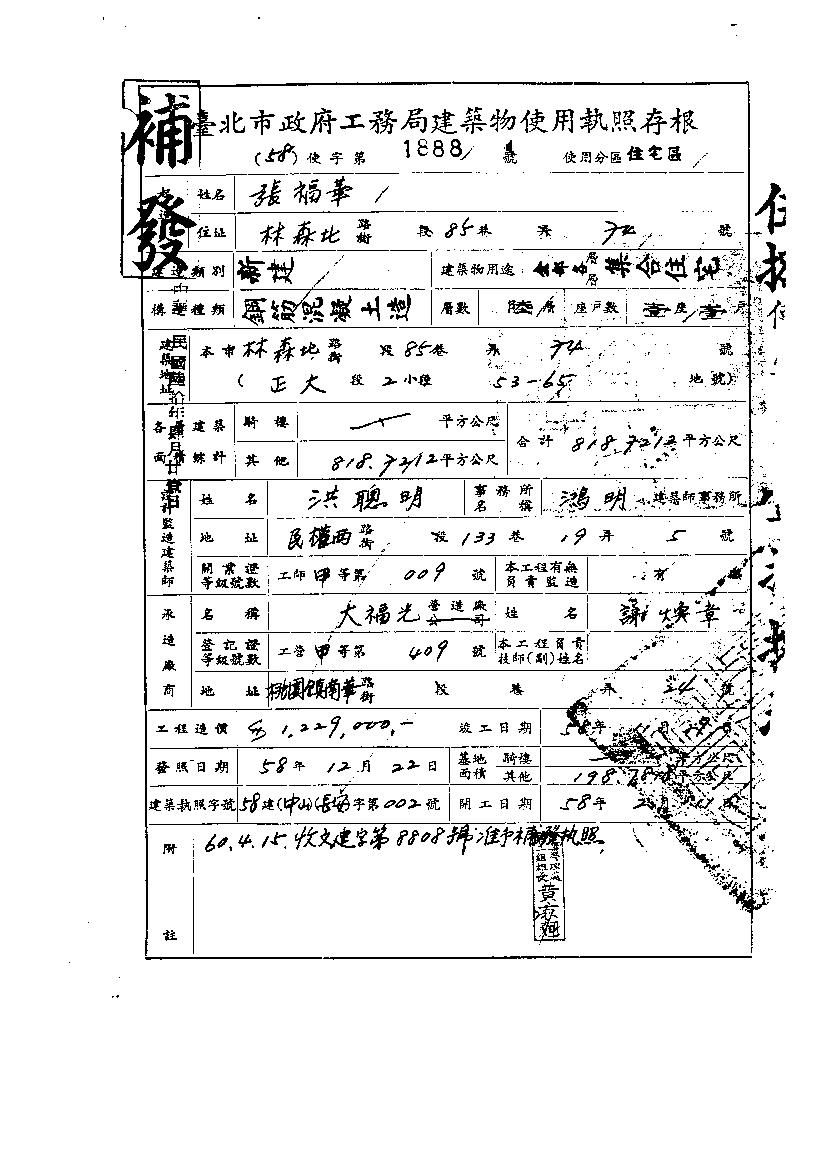 補發
臺北市政府工務局建築物使用執照存根
(58)使字第 1888 號 使用分區 住宅區
姓名 張福華
住址 林森北 路街 段 85 巷 弄 74 號
建造類別 新建 建築物用途 全部各層層 集合住宅
構造種類 鋼筋混凝土造 層數 陸層 座戶數 壹座 壹戶
建築地址 本市 林森北 路街 段 85 巷 弄 74 號
(正大 段 2 小段 53-65 地號)
各層建築面積總計 騎樓 平方公尺 合計 818.7212 平方公尺
其他 818.7212 平方公尺
設計監造建築師 姓名 洪聰明 事務所名稱 鴻明 建築師事務所
地址 民權西 路街 段 133 巷 19 弄 5 號
開業證等級號數 工師 甲 等第 009 號 本工程有無負責監造 有
承造廠商 名稱 大福光 營造廠公司 姓名 謝煥章
登記證等級號數 工營 甲 等第 409 號 本工程負責技師(副)姓名
地址 桃園鎮南華 路街 段 巷 弄 24 號
工程造價 1,229,000,- 竣工日期 58 年 11 月 日
發照日期 58 年 12 月 22 日 基地面積 騎樓 平方公尺
其他 198. 平方公尺
建築執照字號 58 建(中山)(長安)字第 002 號 開工日期 58 年 2 月 日
附註 60.4.15.收文建字第8808號准予補發執照